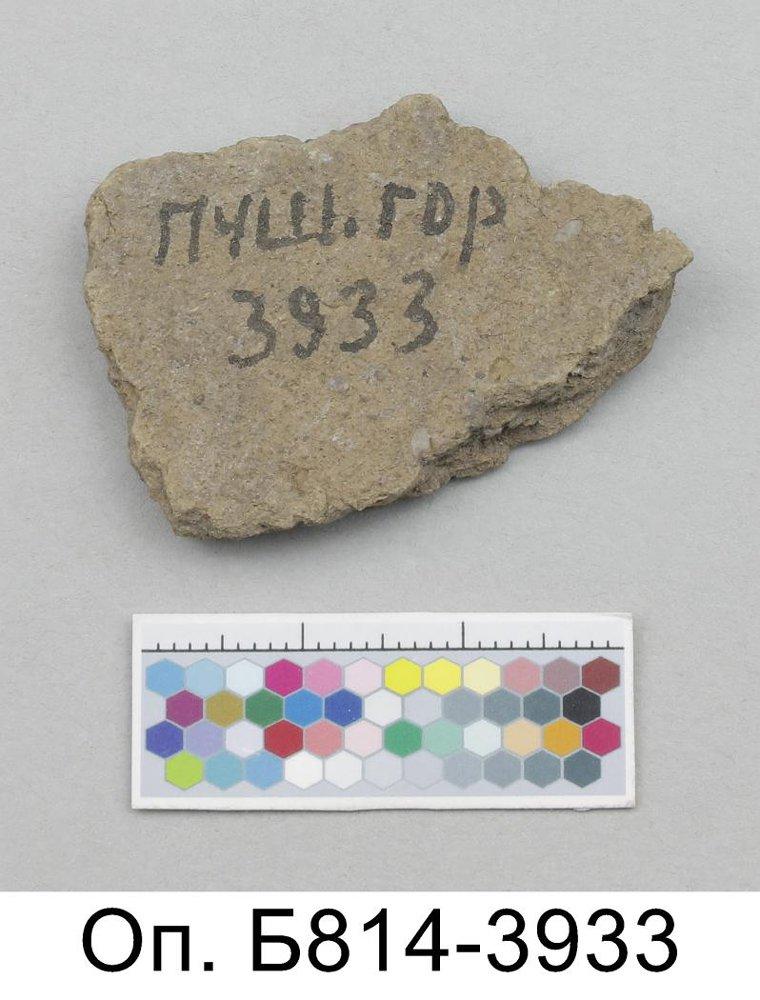 Пуш. гор
3933
Оп. Б814-3933